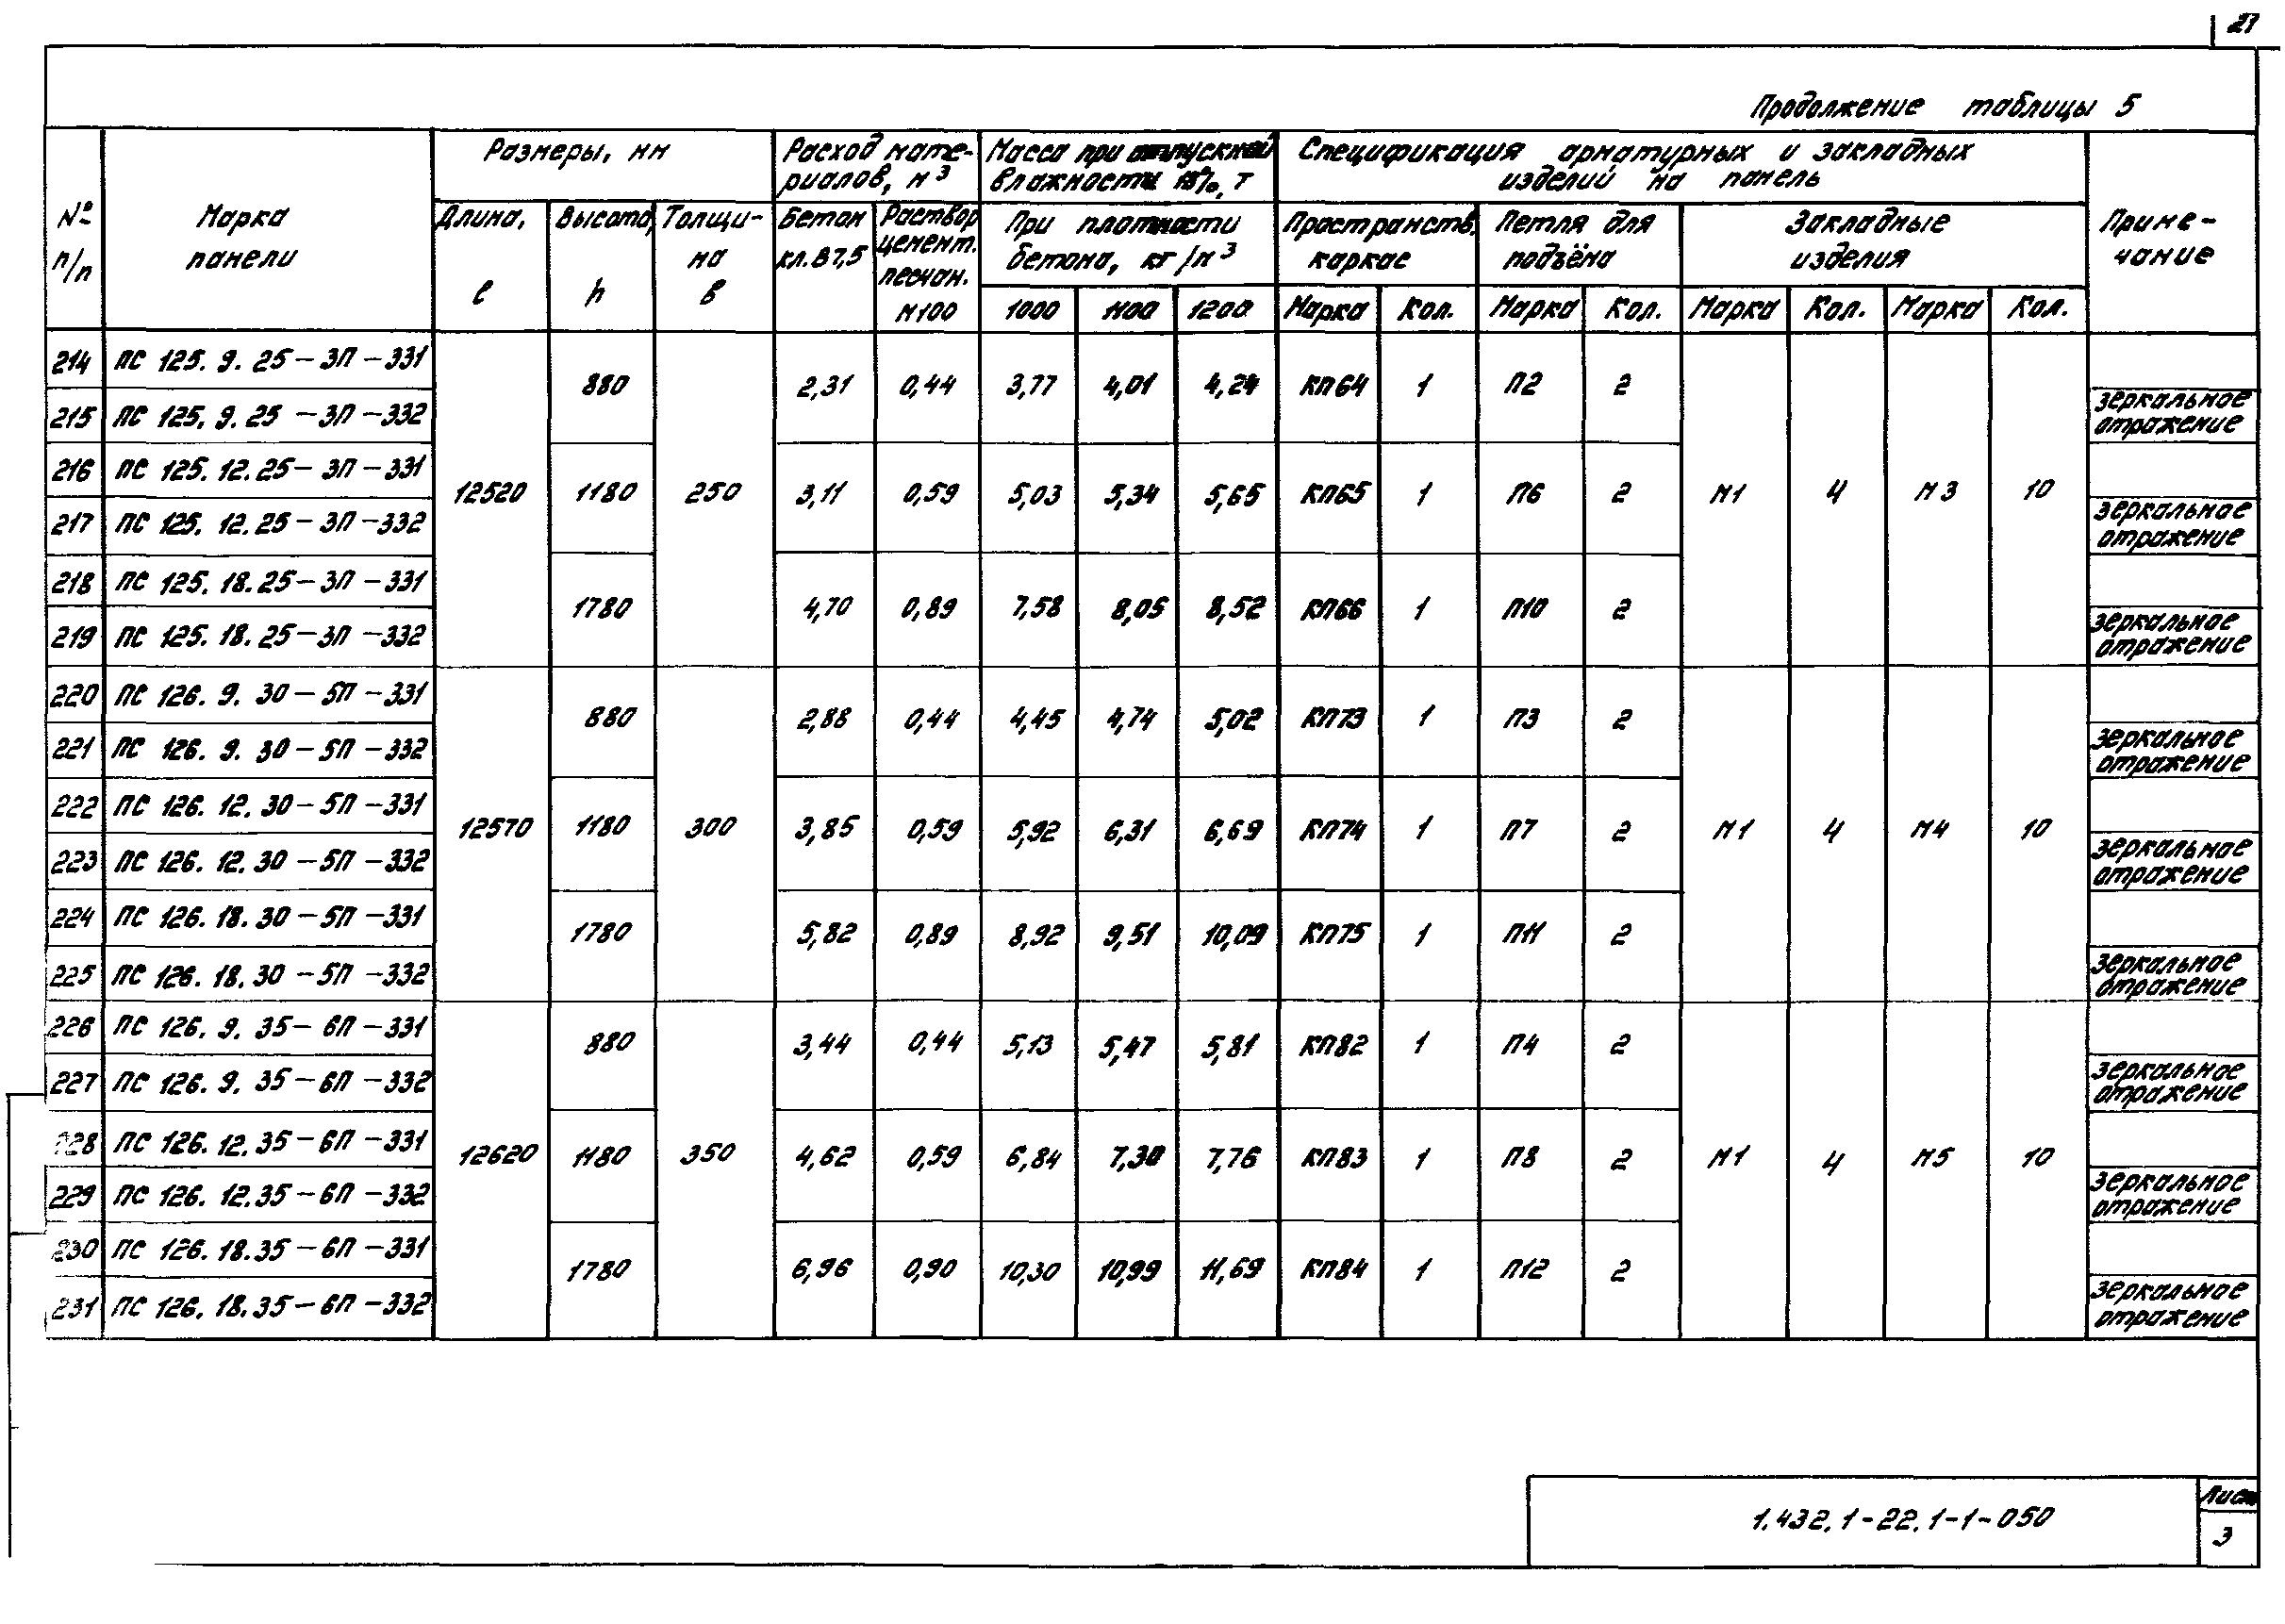 27
Продолжение таблицы 5
№ п/п
Марка панели
Размеры, мм
Расход мате-
риалов, м³
Масса при отпускной
влажности 15%, т
Спецификация арматурных и закладных
изделий на панель
Приме-
чание
Длина, ℓ
Высота, h
Толщи-
на в
Бетон
кл. В7,5
Раствор
цемент.
песчан.
М100
При плотности
бетона, кг/м³
Пространств.
каркас
Петля для
подъёма
Закладные
изделия
1000 1100 1200 Марка Кол. Марка Кол. Марка Кол. Марка Кол.
214 ПС 125. 9. 25 – 3П – 331
880 2,31 0,44 3,77 4,01 4,24 КП64 1 П2 2
215 ПС 125. 9. 25 – 3П – 332 зеркальное
отражение
216 ПС 125. 12. 25 – 3П – 331
12520 1180 250 3,11 0,59 5,03 5,34 5,65 КП65 1 П6 2 М1 4 М3 10
217 ПС 125. 12. 25 – 3П – 332 зеркальное
отражение
218 ПС 125. 18. 25 – 3П – 331
1780 4,70 0,89 7,58 8,05 8,52 КП66 1 П10 2
219 ПС 125. 18. 25 – 3П – 332 зеркальное
отражение
220 ПС 126. 9. 30 – 5П – 331
880 2,88 0,44 4,45 4,74 5,02 КП73 1 П3 2
221 ПС 126. 9. 30 – 5П – 332 зеркальное
отражение
222 ПС 126. 12. 30 – 5П – 331
12570 1180 300 3,85 0,59 5,92 6,31 6,69 КП74 1 П7 2 М1 4 М4 10
223 ПС 126. 12. 30 – 5П – 332 зеркальное
отражение
224 ПС 126. 18. 30 – 5П – 331
1780 5,82 0,89 8,92 9,51 10,09 КП75 1 П11 2
225 ПС 126. 18. 30 – 5П – 332 зеркальное
отражение
226 ПС 126. 9. 35 – 6П – 331
880 3,44 0,44 5,13 5,47 5,81 КП82 1 П4 2
227 ПС 126. 9. 35 – 6П – 332 зеркальное
отражение
228 ПС 126. 12. 35 – 6П – 331
12620 1180 350 4,62 0,59 6,84 7,30 7,76 КП83 1 П8 2 М1 4 М5 10
229 ПС 126. 12. 35 – 6П – 332 зеркальное
отражение
230 ПС 126. 18. 35 – 6П – 331
1780 6,96 0,90 10,30 10,99 11,69 КП84 1 П12 2
231 ПС 126. 18. 35 – 6П – 332 зеркальное
отражение
1.432.1-22.1-1-050
Лист
3